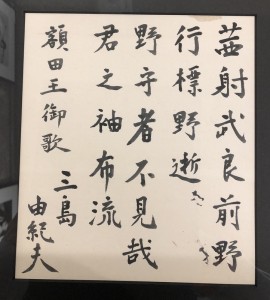 茜射武良前野
行標野逝
野守者不見哉
君之袖布流
額田王御歌
三島
由紀夫